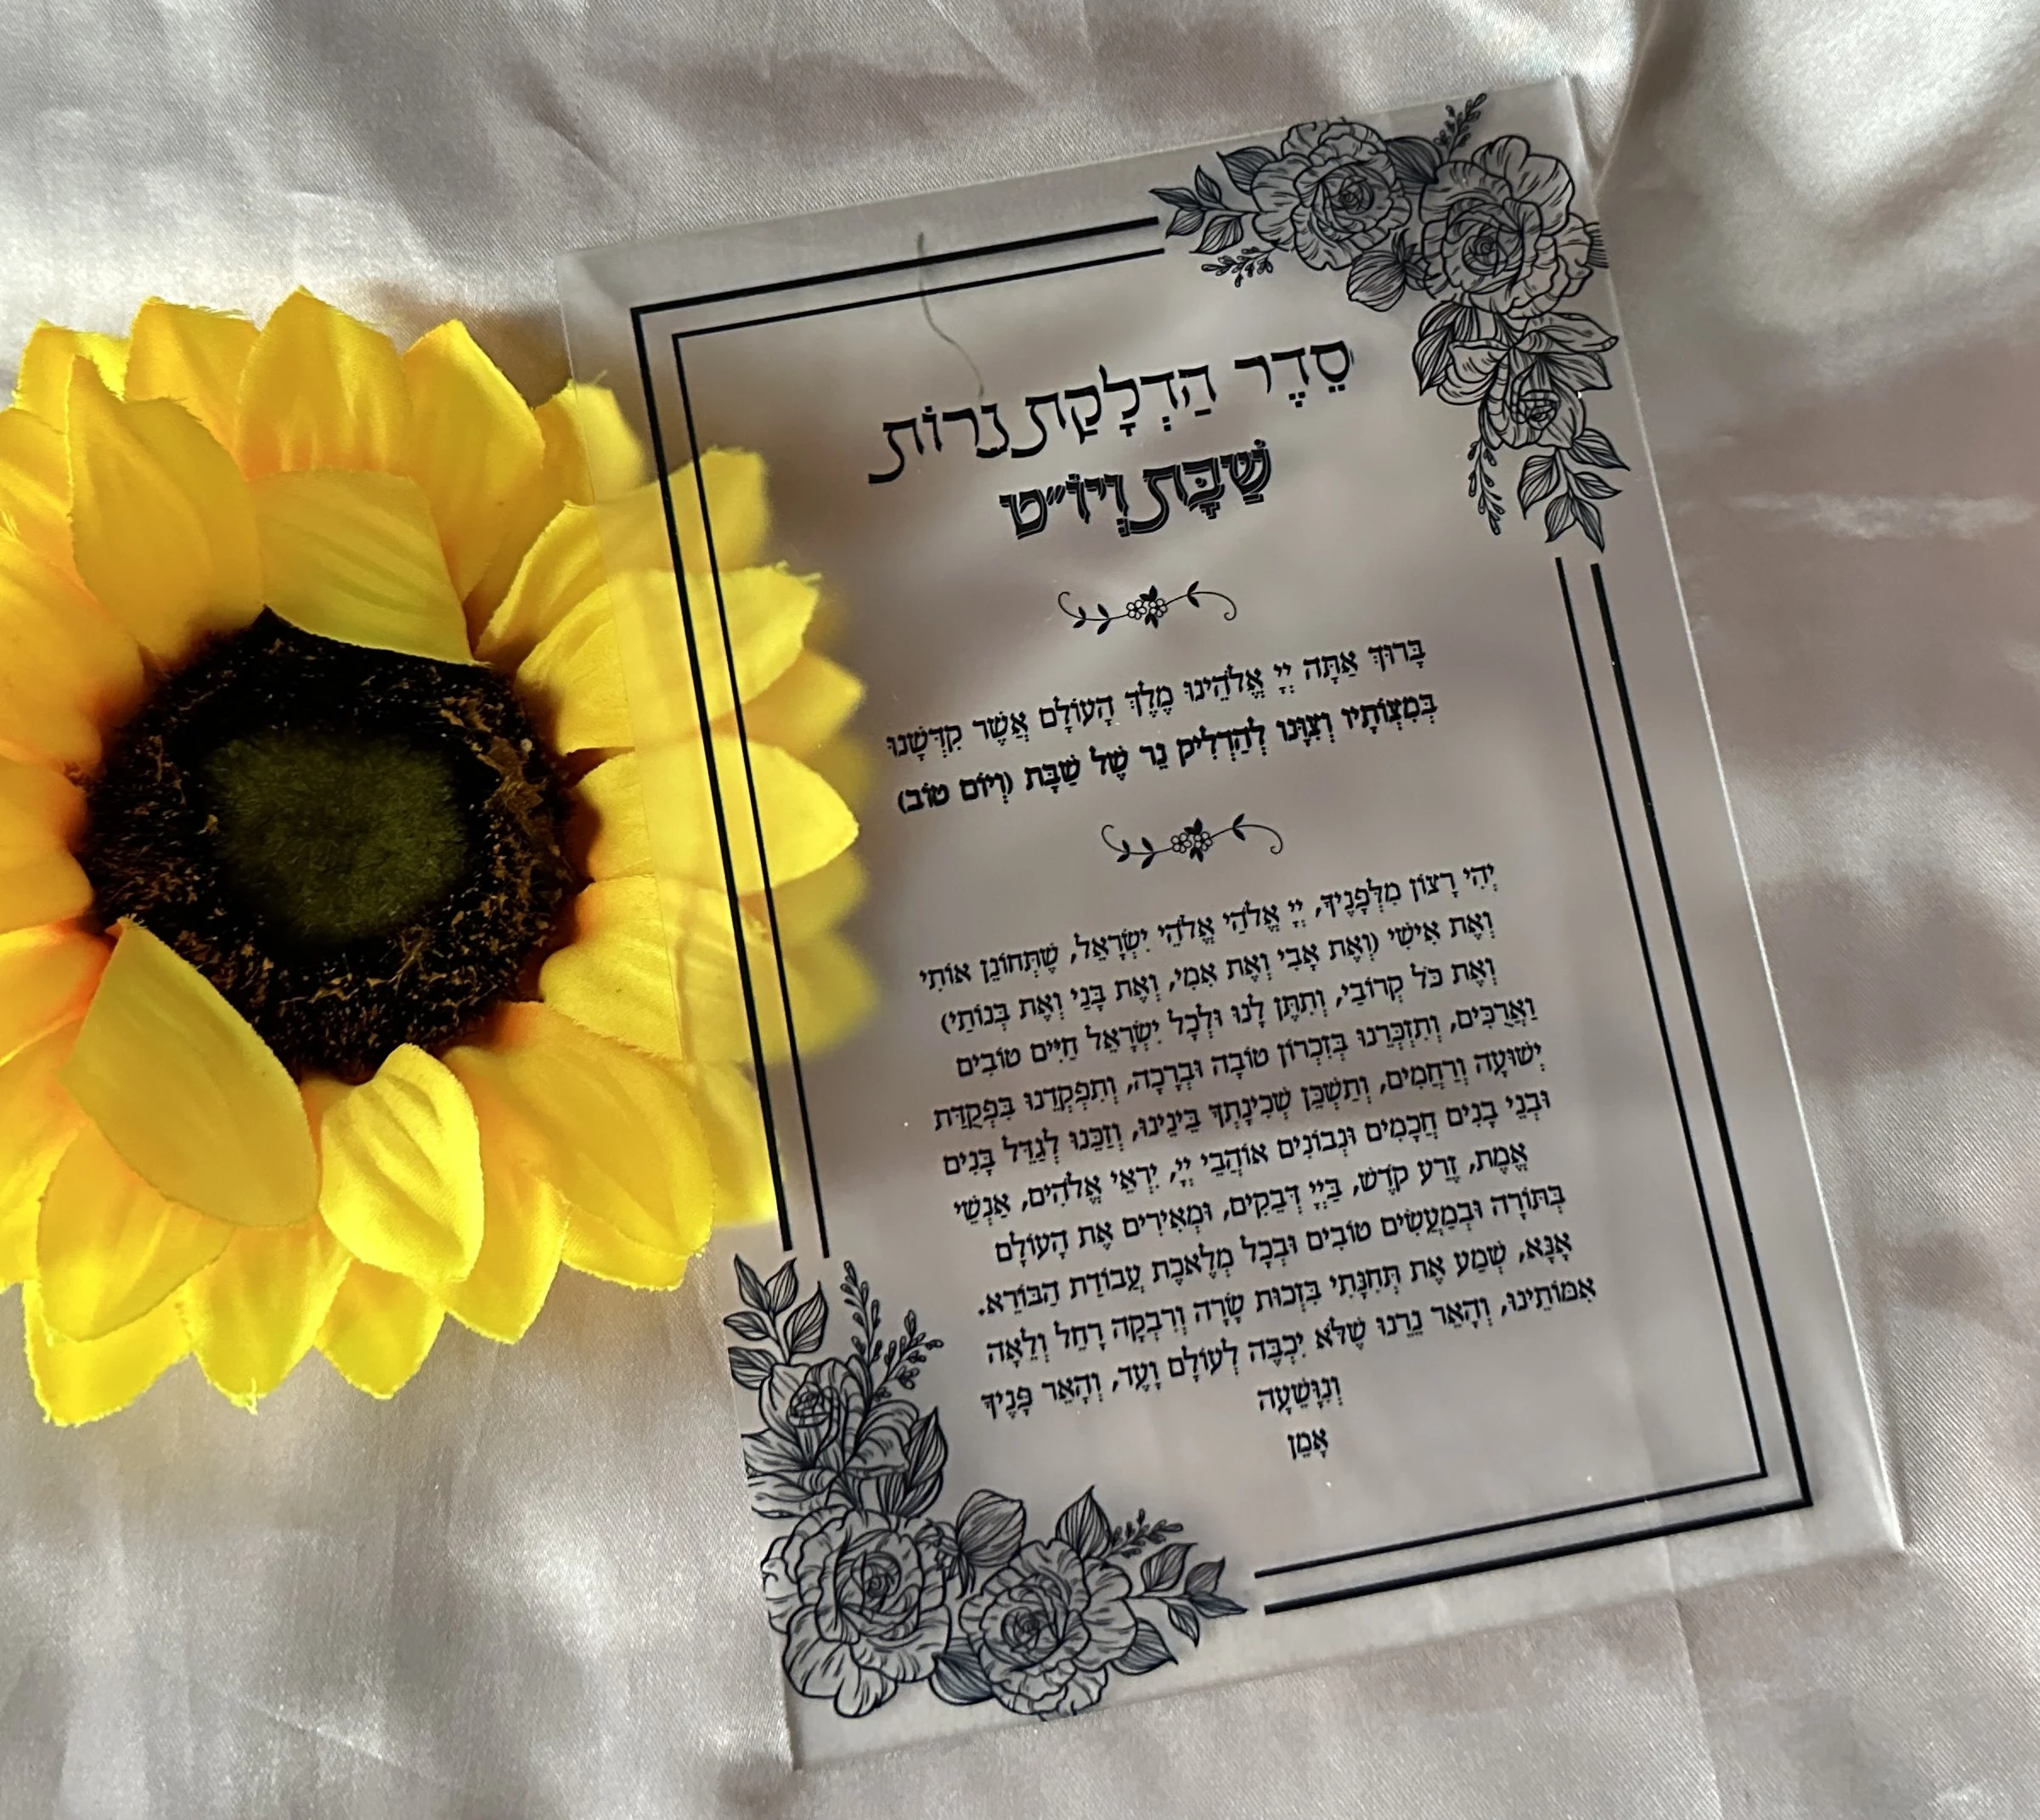 סֵדֶר הַדְלָקַת נֵרוֹת
שַׁבָּת וְיוֹ״ט
בָּרוּךְ אַתָּה יְיָ אֱלֹהֵינוּ מֶלֶךְ הָעוֹלָם אֲשֶׁר קִדְּשָׁנוּ
בְּמִצְוֹתָיו וְצִוָּנוּ לְהַדְלִיק נֵר שֶׁל שַׁבָּת (וְיוֹם טוֹב)
יְהִי רָצוֹן מִלְּפָנֶיךָ, יְיָ אֱלֹהַי אֱלֹהֵי יִשְׂרָאֵל, שֶׁתְּחוֹנֵן אוֹתִי
וְאֶת אִישִׁי (וְאֶת אָבִי וְאֶת אִמִּי, וְאֶת בָּנַי וְאֶת בְּנוֹתַי)
וְאֶת כֹּל קְרוֹבַי, וְתִתֵּן לָנוּ וּלְכָל יִשְׂרָאֵל חַיִּים טוֹבִים
וַאֲרֻכִּים, וְתִזְכְּרֵנוּ בְּזִכְרוֹן טוֹבָה וּבְרָכָה, וְתִפְקְדֵנוּ בִּפְקֻדַּת
יְשׁוּעָה וְרַחֲמִים, וְתַשְׁכֵּן שְׁכִינָתְךָ בֵּינֵינוּ, וְזַכֵּנוּ לְגַדֵּל בָּנִים
וּבְנֵי בָנִים חֲכָמִים וּנְבוֹנִים אוֹהֲבֵי יְיָ, יִרְאֵי אֱלֹהִים, אַנְשֵׁי
אֱמֶת, זֶרַע קֹדֶשׁ, בַּיְיָ דְּבֵקִים, וּמְאִירִים אֶת הָעוֹלָם
בְּתּוֹרָה וּבְמַעֲשִׂים טוֹבִים וּבְכָל מְלֶאכֶת עֲבוֹדַת הַבּוֹרֵא.
אָנָּא, שְׁמַע אֶת תְּחִנָּתִי בִּזְכוּת שָׂרָה וְרִבְקָה רָחֵל וְלֵאָה
אִמּוֹתֵינוּ, וְהָאֵר נֵרֵנוּ שֶׁלֹּא יִכְבֶּה לְעוֹלָם וָעֶד, וְהָאֵר פָּנֶיךָ
וְנִוָּשֵׁעָה
אָמֵן